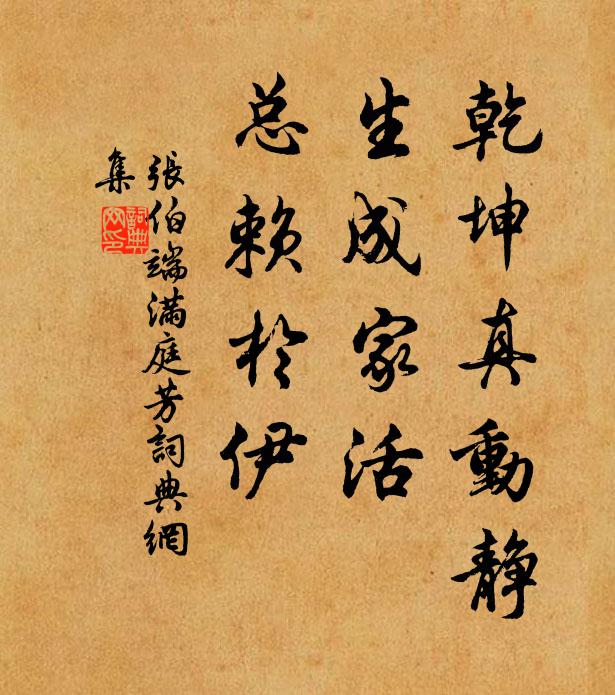 乾坤真動静
生成家活
总赖於伊
張伯端滿庭芳詞典網
集
詞典网印